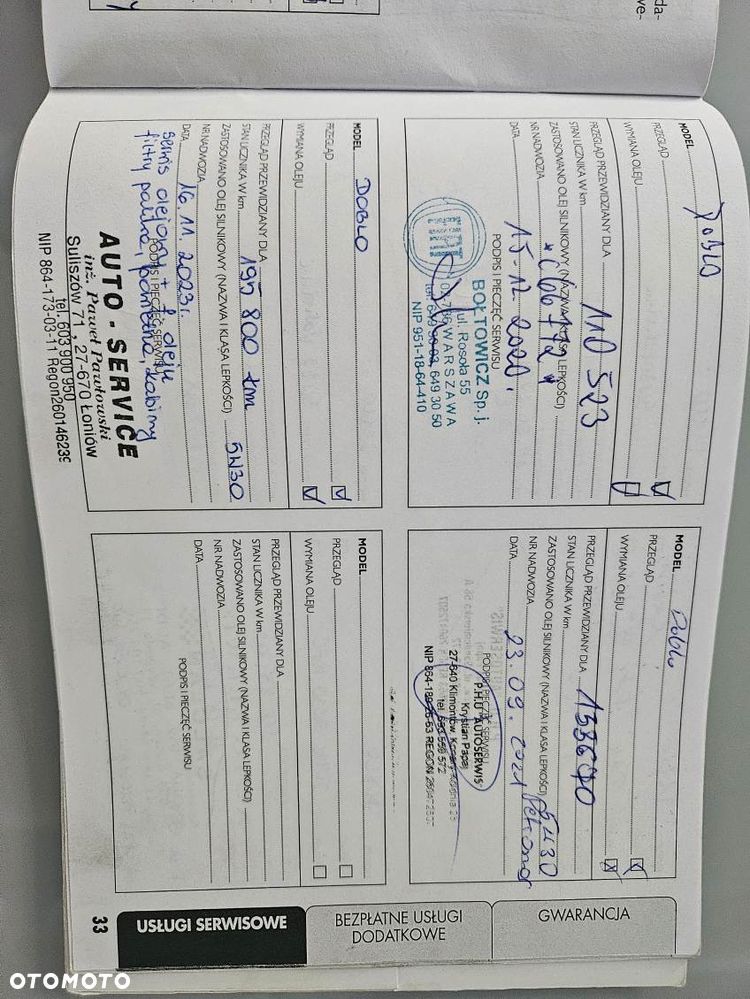 MODEL DOBLO
PRZEGLĄD
WYMIANA OLEJU
PRZEGLĄD PRZEWIDZIANY DLA
STAN LICZNIKA W km 110 523
ZASTOSOWANO OLEJ SILNIKOWY (NAZWA I KLASA LEPKOŚCI)
NR NADWOZIA
DATA 15-12.2020r.
PODPIS I PIECZĘĆ SERWISU
BOŁTOWICZ Sp. j.
ul. Rosoła 55
WARSZAWA
649 30 50
NIP 951-18-64-410
MODEL Doblo
PRZEGLĄD
WYMIANA OLEJU
PRZEGLĄD PRZEWIDZIANY DLA
STAN LICZNIKA W km
ZASTOSOWANO OLEJ SILNIKOWY (NAZWA I KLASA LEPKOŚCI)
NR NADWOZIA
DATA 23.09.2021
PODPIS I PIECZĘĆ SERWISU
P.H.U "AUTOSERWIS"
Krystian Papaj
27-640 Klimontów
MODEL DOBLO
PRZEGLĄD
WYMIANA OLEJU
PRZEGLĄD PRZEWIDZIANY DLA
STAN LICZNIKA W km 195 800 km
ZASTOSOWANO OLEJ SILNIKOWY (NAZWA I KLASA LEPKOŚCI) 5W30
NR NADWOZIA
DATA 16.11.2023r.
serwis olejowy + f. oleju
filtry paliwa, powietrza, kabiny
PODPIS I PIECZĘĆ SERWISU
AUTO - SERVICE
inż. Paweł Pawłowski
Suliszów 71, 27-670 Łoniów
tel. 603 900 950
NIP 864-173-03-11 Regon
MODEL
PRZEGLĄD
WYMIANA OLEJU
PRZEGLĄD PRZEWIDZIANY DLA
STAN LICZNIKA W km
ZASTOSOWANO OLEJ SILNIKOWY (NAZWA I KLASA LEPKOŚCI)
NR NADWOZIA
DATA
PODPIS I PIECZĘĆ SERWISU
GWARANCJA
BEZPŁATNE USŁUGI
DODATKOWE
USŁUGI SERWISOWE
33
OTOMOTO